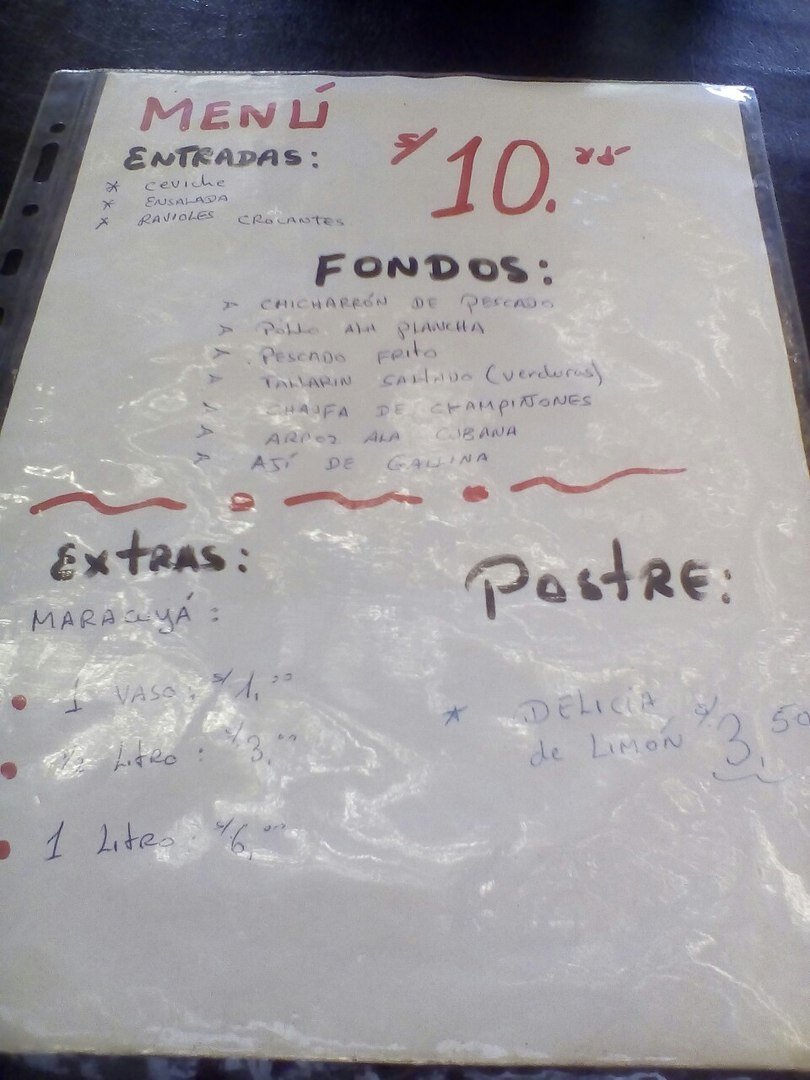 MENÚ
ENTRADAS: S/ 10.
* ceviche
* ENSALADA
* RAVIOLES CROCANTES
FONDOS:
CHICHARRÓN DE PESCADO
POLLO ALA PLANCHA
PESCADO FRITO
TALLARIN SALTADO (verduras)
CHAUFA DE CHAMPIÑONES
ARROZ ALA CUBANA
AJÍ DE GALLINA
EXTRAS: POSTRE:
MARACUYÁ:
1 VASO: S/1.00
* DELICIA S/3.50
de LIMÓN
1/2 LITRO: S/3.00
1 LITRO: S/6.00